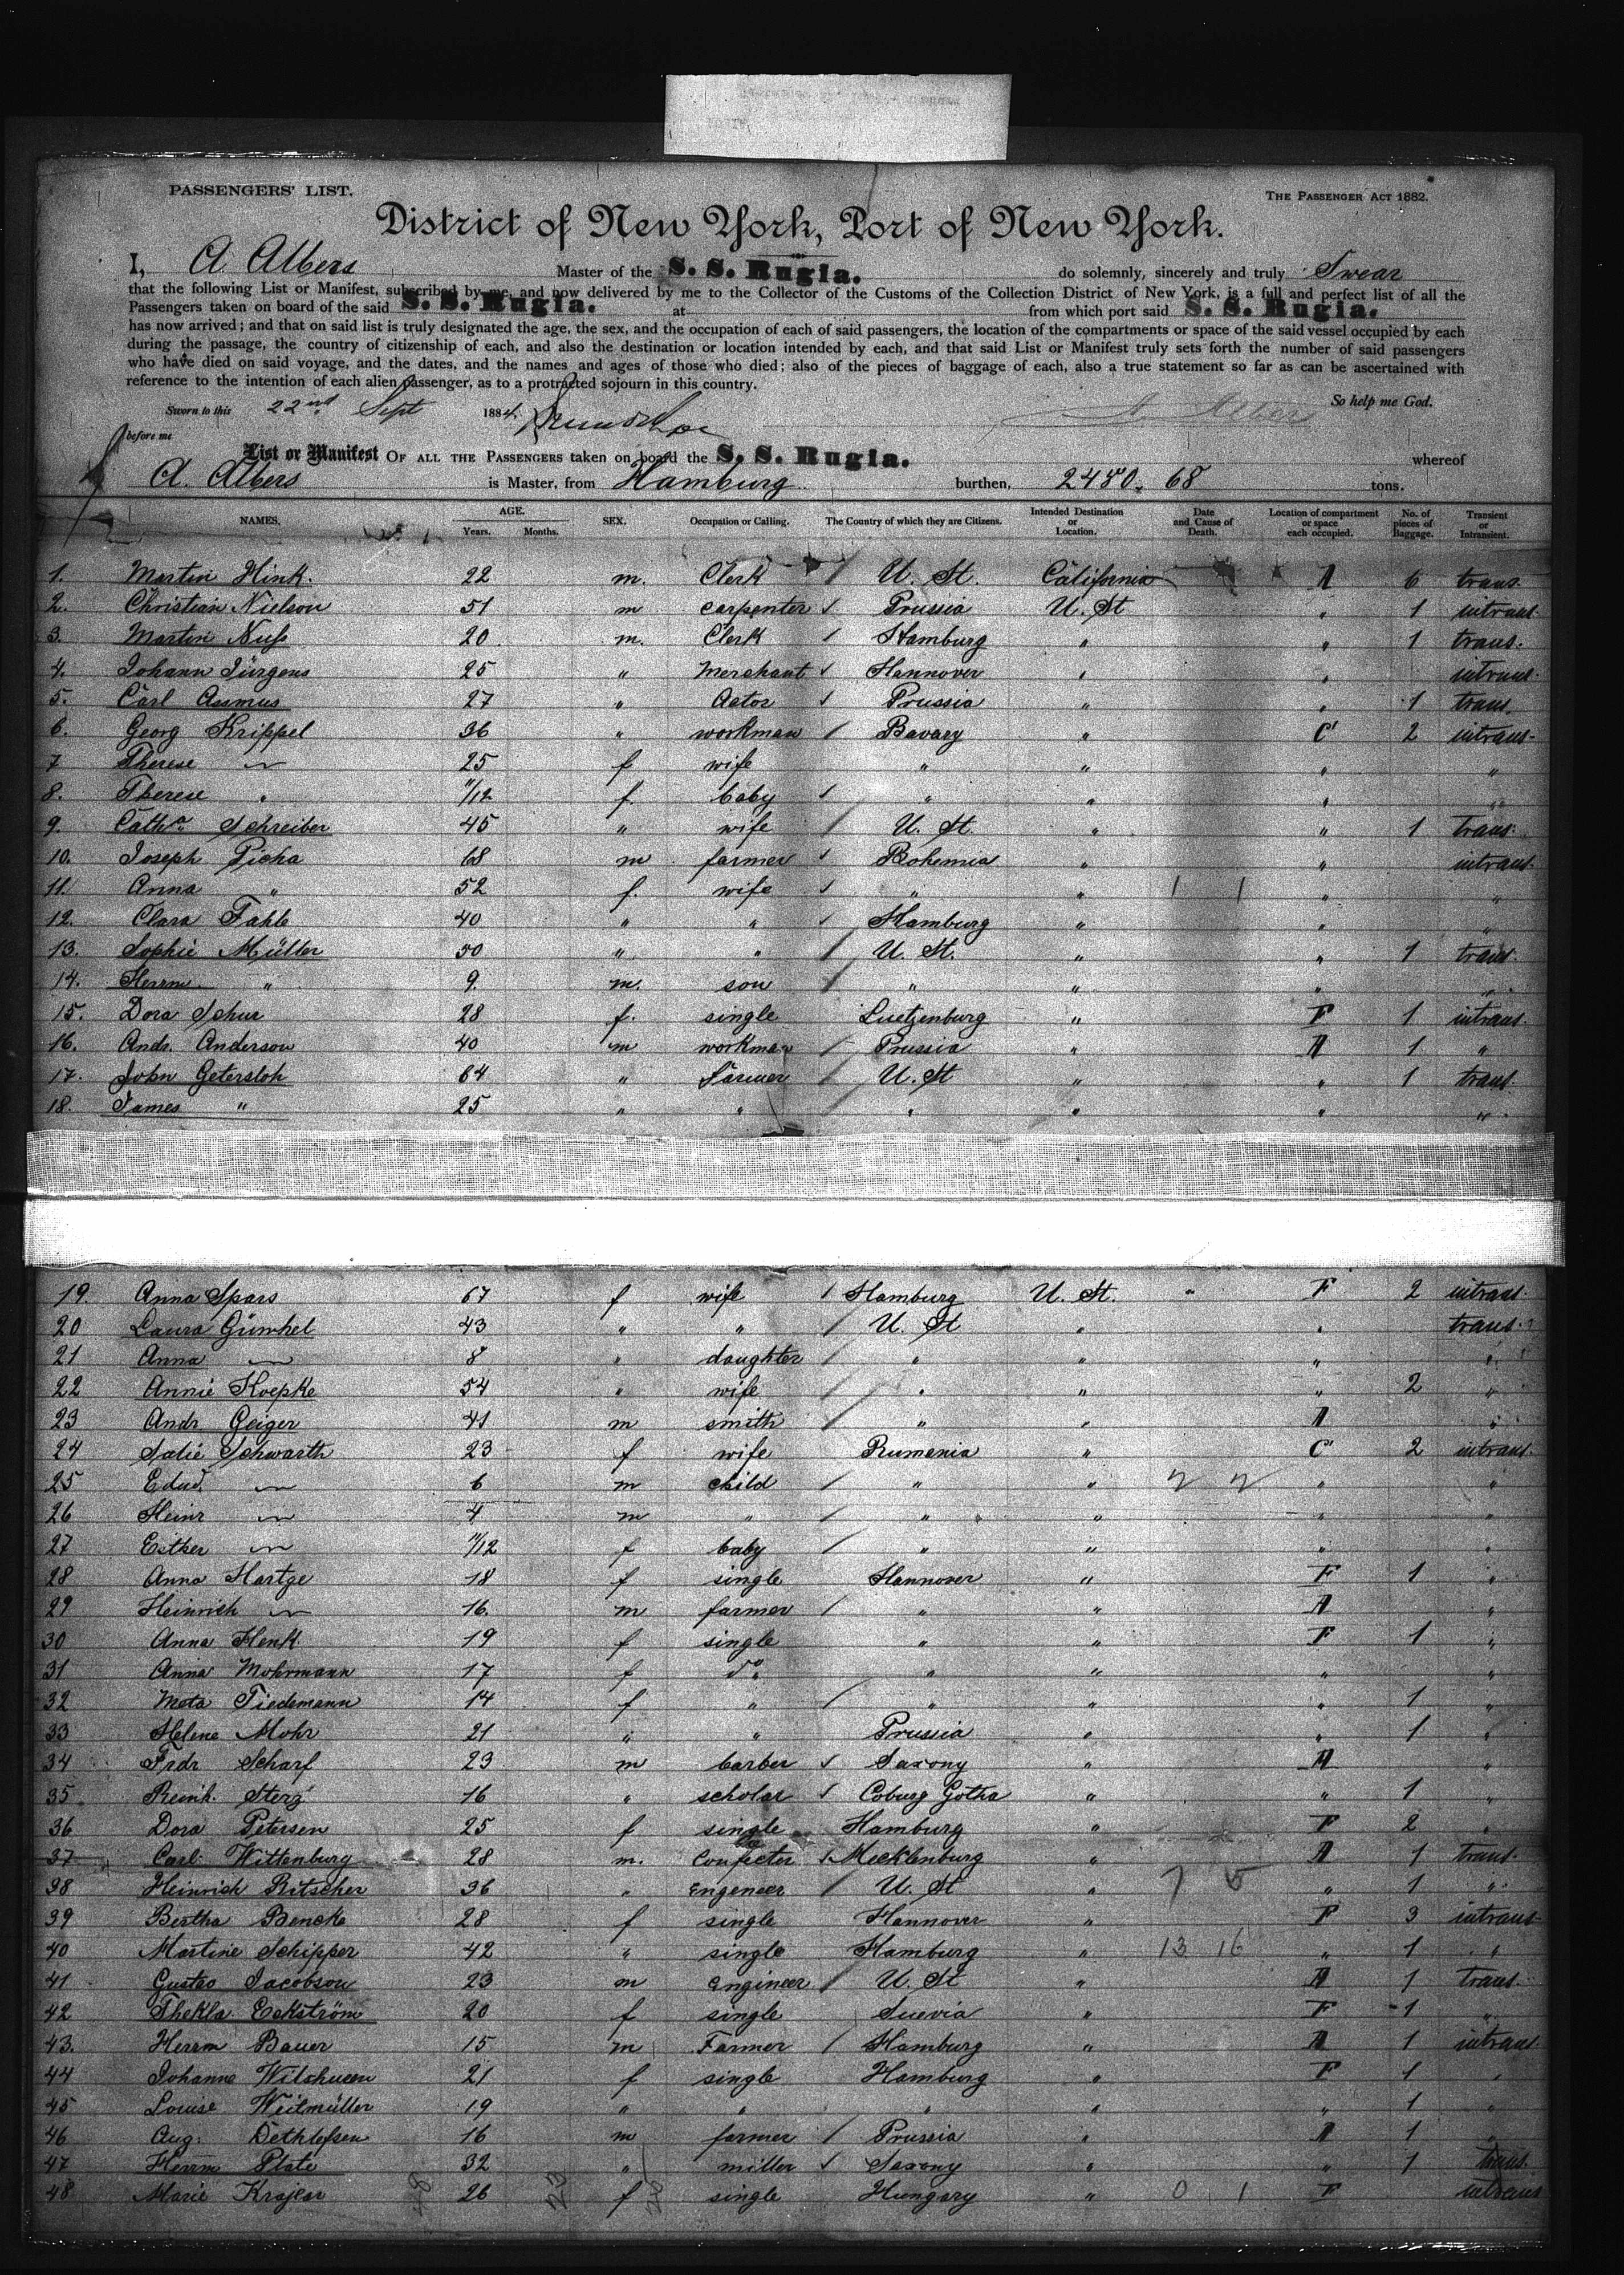 PASSENGERS' LIST.
THE PASSENGER ACT 1882.
District of New York, Port of New York.
I, A Albers Master of the S. S. Rugia. do solemnly, sincerely and truly Swear
that the following List or Manifest, subscribed by me, and now delivered by me to the Collector of the Customs of the Collection District of New York, is a full and perfect list of all the
Passengers taken on board of the said S. S. Rugia. at from which port said S. S. Rugia.
has now arrived; and that on said list is truly designated the age, the sex, and the occupation of each of said passengers, the location of the compartments or space of the said vessel occupied by each
during the passage, the country of citizenship of each, and also the destination or location intended by each, and that said List or Manifest truly sets forth the number of said passengers
who have died on said voyage, and the dates, and the names and ages of those who died; also of the pieces of baggage of each, also a true statement so far as can be ascertained with
reference to the intention of each alien passenger, as to a protracted sojourn in this country.
Sworn to this 22nd Sept 1884. A. Albers So help me God.
before me
List or Manifest OF ALL THE PASSENGERS taken on board the S. S. Rugia. whereof
A. Albers is Master, from Hamburg burthen, 2450. 68 tons.
NAMES. AGE. Years. Months. SEX. Occupation or Calling. The Country of which they are Citizens. Intended Destination or Location. Date and Cause of Death. Location of compartment or space each occupied. No. of pieces of Baggage. Transient or Intransient.
1. Martin Hink. 22 m. Clerk / U. St. California A 6 trans.
2. Christian Nielson 51 m carpenter / Prussia U. St " 1 intrans.
3. Martin Nuß 20 m. Clerk / Hamburg " " 1 trans.
4. Johann Jürgens 25 " Merchant / Hannover " " intrans.
5. Carl Asmus 27 " Actor / Prussia " " 1 trans.
6. Georg Krippel 36 " workman / Bavary " C 2 intrans.
7 Therese " 25 f wife " " " "
8. Therese " 11/12 f. baby / " " " "
9. Catha Schreiber 45 " wife / U. St. " " 1 trans.
10. Joseph Picha 68 m farmer / Bohemia " " intrans.
11. Anna " 52 f. wife / " " 1 1 " "
12. Clara Fahle 40 " " / Hamburg " " "
13. Sophie Müller 50 " " / U. St. " " 1 trans.
14. Herrm. " 9. m. son / " " " "
15. Dora Schur 28 f. single Luetzenburg " F 1 intrans.
16. Andr. Anderson 40 m workman / Prussia " A 1 "
17. John Getersloh 64 " Farmer / U. St " " 1 trans.
18. James " 25 " " " " " "
19. Anna Spars 67 f wife / Hamburg U. St. " F 2 intrans.
20 Laura Günkel 43 " " / U. St " " trans.
21 Anna " 8 " daughter / " " " "
22 Annie Koepke 54 " wife / " " " 2 "
23 Andr. Geiger 41 m smith / " " A "
24 Salie Schwarth 23 f wife Rumenia " C 2 intrans.
25 Edud. " 6 m child / " " 2 2 " "
26 Heinr " 4 m " / " " " "
27 Esther " 11/12 f baby / " " " "
28 Anna Hartge 18 f single Hannover " F 1 "
29 Heinrich " 16. m farmer / " " A "
30 Anna Henk 19 f single " " F 1 "
31 Anna Mohrmann 17 f do. " " " "
32 Meta Tiedemann 14 f " / " " " 1 "
33 Helene Mohr 21 " " Prussia " " 1 "
34 Frdr Scharf 23 m barber / Saxony " A "
35. Reinh. Sterz 16 " scholar / Coburg Gotha " " 1 "
36 Dora Petersen 25 f single Hamburg " F 2 "
37 Carl Wittenburg 28 m. Confecter / Mecklenburg " A 1 trans.
38 Heinrich Ritscher 36 " Engeneer / U. St " 7 5 " 1 "
39 Bertha Bencke 28 f single Hannover " F 3 intrans
40 Martine Schipper 42 " single Hamburg " 13 16 " 1 "
41 Gustav Jacobson 23 m engineer / U. St " A 1 trans.
42 Thekla Eckström 20 f single Suevia " F 1 "
43. Herrm Bauer 15 m Farmer / Hamburg " A 1 intrans.
44 Johanne Wilshusen 21 f single Hamburg " F 1 "
45 Louise Weitmüller 19 " " " " " 1 "
46 Aug. Dethlefsen 16 m farmer / Prussia " A 1 "
47 Herrm Plate 32 " miller / Saxony " " 1 trans.
48 Marie Krajcar 26 f single Hungary " 0 1 F intrans